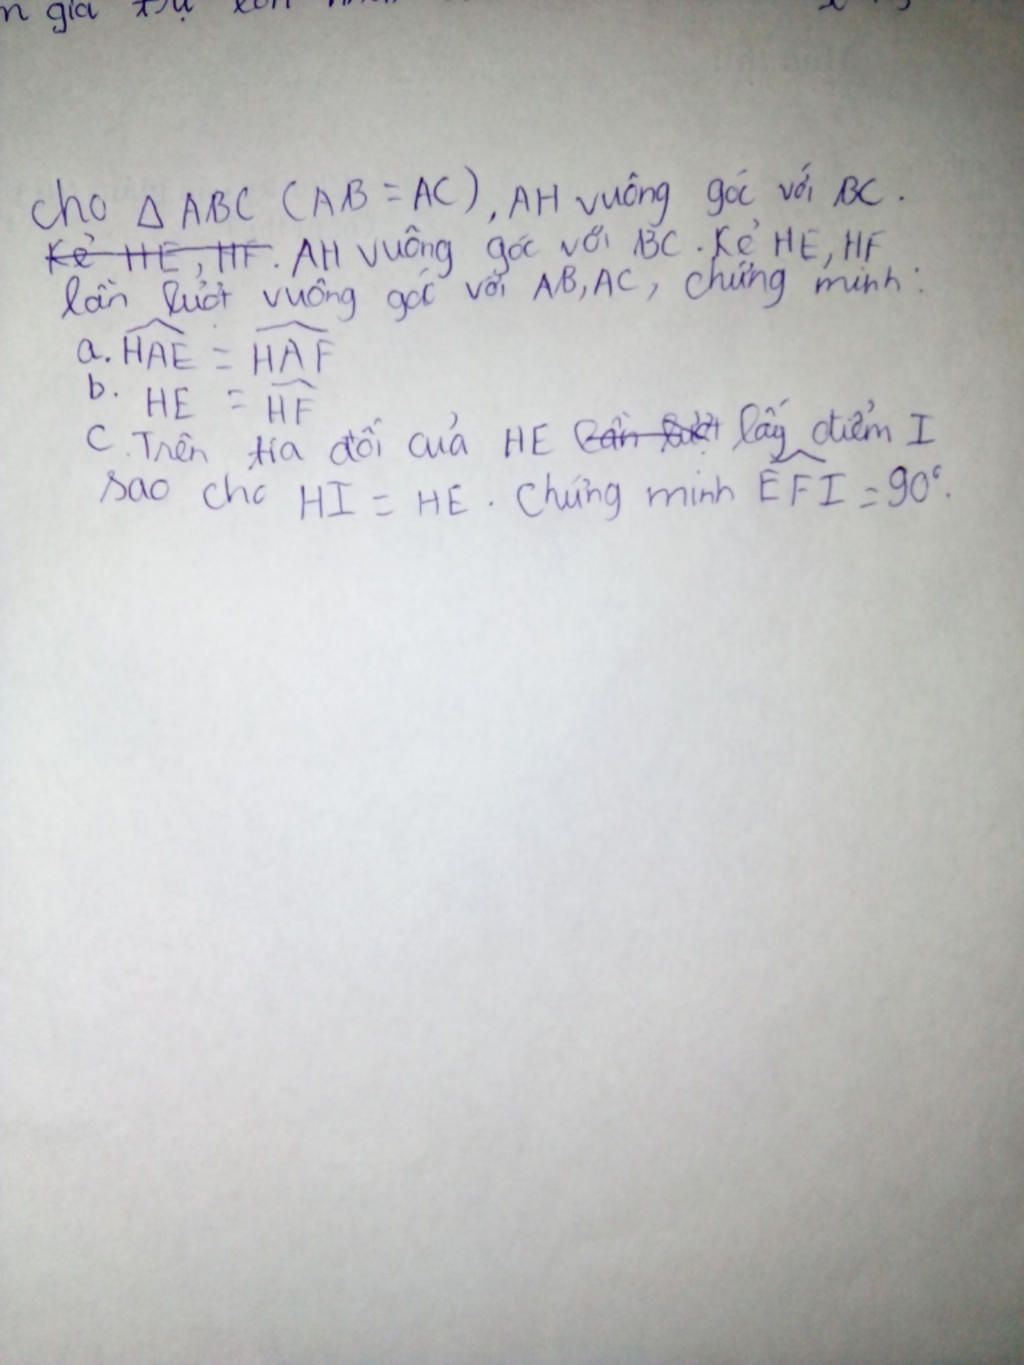 n giá trị lớn nhất
Cho Δ ABC (AB = AC), AH vuông góc với BC.
Kẻ HE, HF. AH vuông góc với BC. Kẻ HE, HF
lần lượt vuông góc với AB, AC, chứng minh:
a. \widehat{HAE} = \widehat{HAF}
b. HE = \widehat{HF}
c. Trên tia đối của HE lần lượt lấy điểm I
sao cho HI = HE. Chứng minh \widehat{EFI} = 90°.